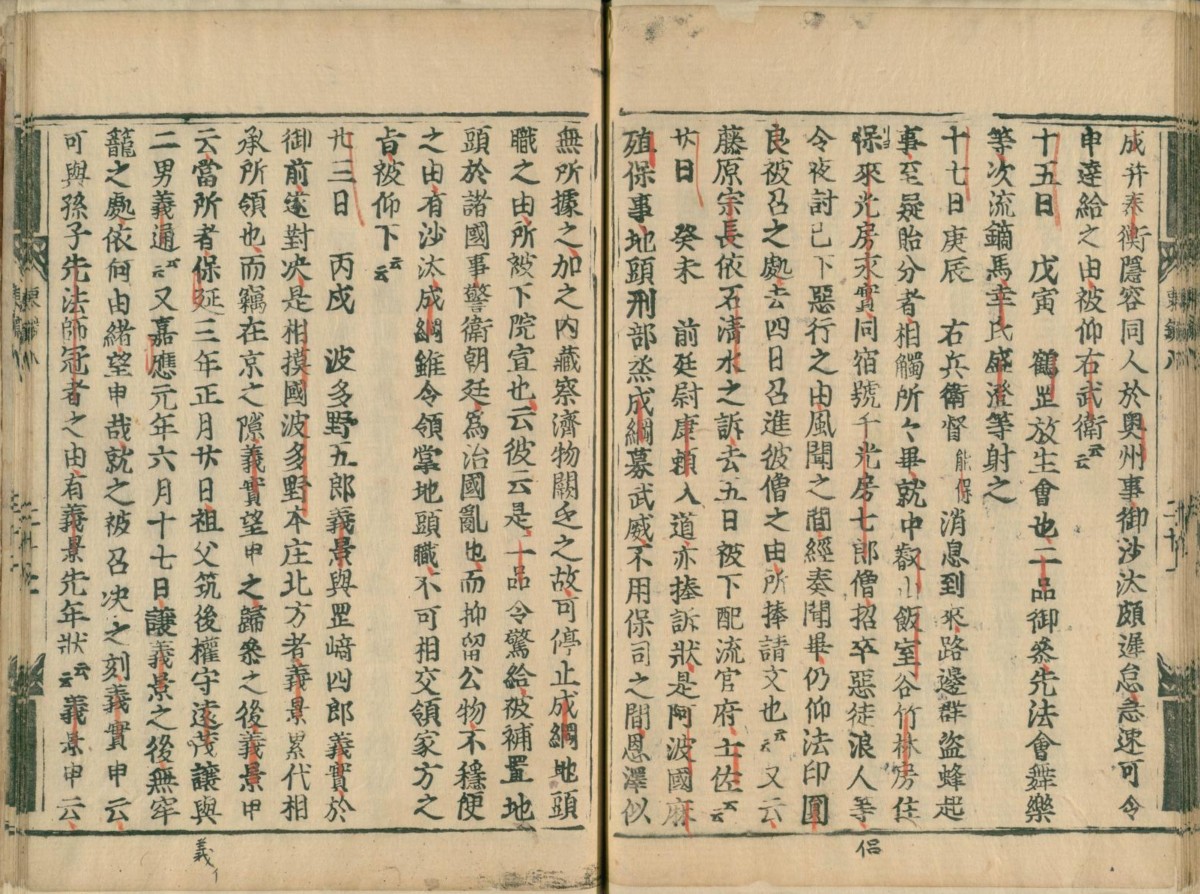 成并泰衡隱容同人於奥州事御沙汰頗遲怠急速可令
申達給之由被仰右武衛云云
十五日　戊寅　鶴岡放生會也二品御參先法會舞樂
等次流鏑馬幸氏盛澄等射之
十七日庚辰　右兵衛督能保消息到來路邊群盗蜂起
事至疑貽分者相觸所々畢就中叡山飯室谷竹林房住
保來光房永實同宿號千光房七郎僧招卒惡徒浪人等
侶
令夜討已下惡行之由風聞之間經奏聞畢仍仰法印圓
良被召之處去四日召進彼僧之由所捧請文也云云又云
藤原宗長依石清水之訴去五日被下配流官府土佐云云
廿日　癸未　前廷尉康頼入道亦捧訴狀是阿波國麻
殖保事地頭刑部烝成綱募武威不用保司之間恩澤似
無所據之加之内藏寮濟物闕乏之故可停止成綱地頭
職之由所被下院宣也云彼云是二品令驚給被補置地
頭於諸國事警衛朝廷爲治國亂也而抑留公物不穩便
之由有沙汰成綱雖令領掌地頭職不可相交領家方之
旨被仰下云云
廿三日　丙戌　波多野五郎義景與岡﨑四郎義實於
御前遂對決是相摸國波多野本庄北方者義景累代相
承所領也而竊在京之隙義實望申之歸參之後義景申
云當所者保延三年正月廿日祖父筑後權守遠茂讓與
義イ
二男義通云云又嘉應元年六月十七日讓義景之後無牢
籠之處依何由緒望申哉就之被召決之刻義實申云
可與孫子先法師冠者之由有義景先年狀云云義景申云